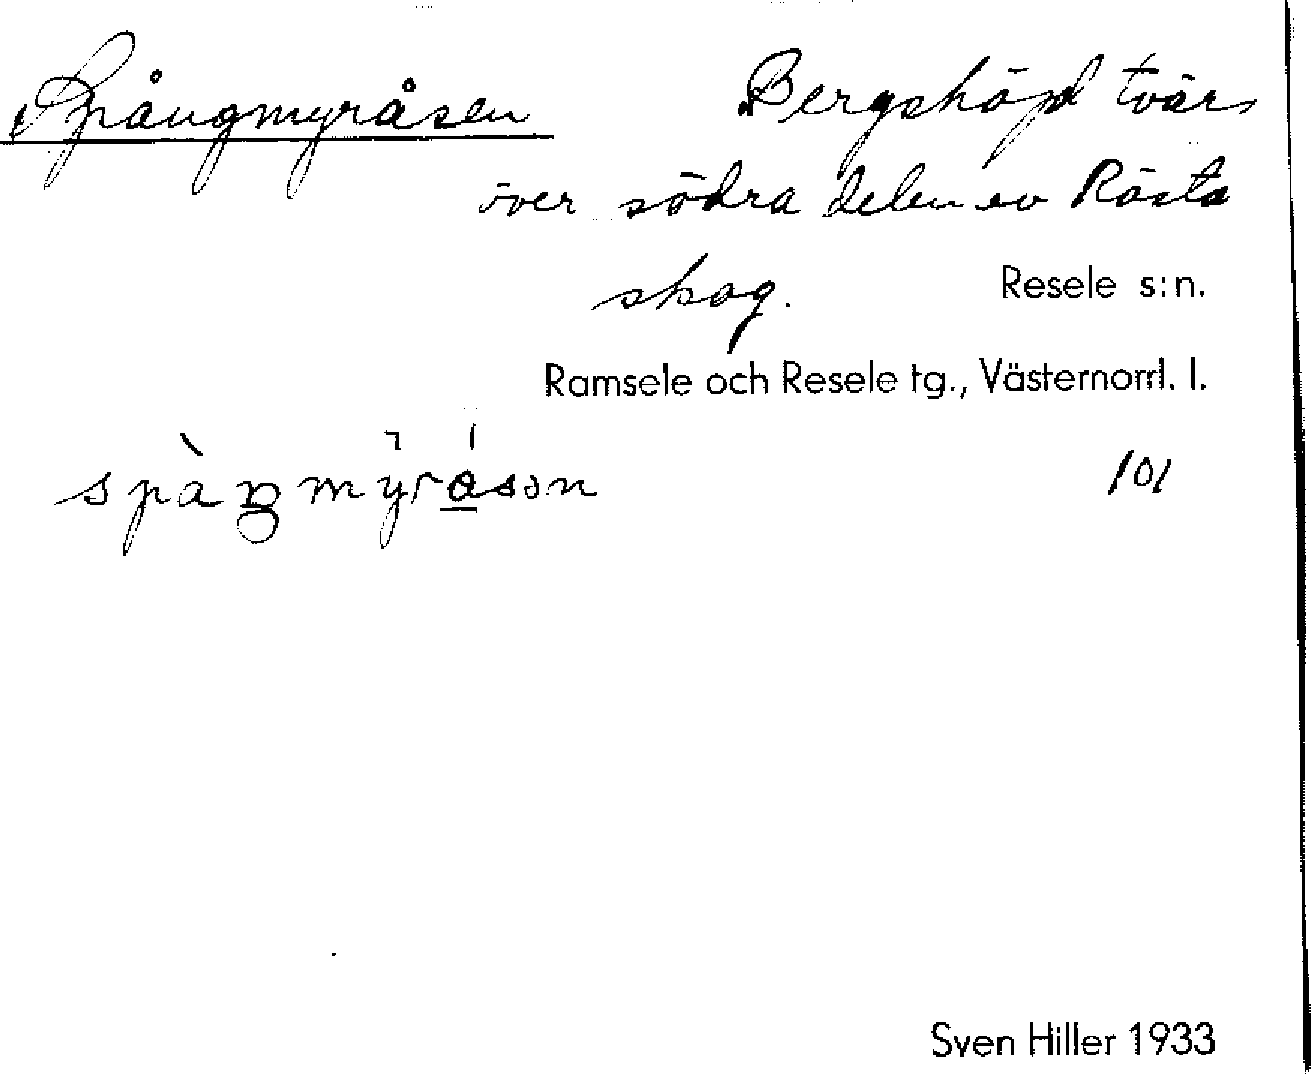 Spångmyråsen Bergshöjd tvärs
över södra delen av Rösta
skog. Resele s:n.
Ramsele och Resele tg., Västernorrl. l.
101
Sven Hiller 1933